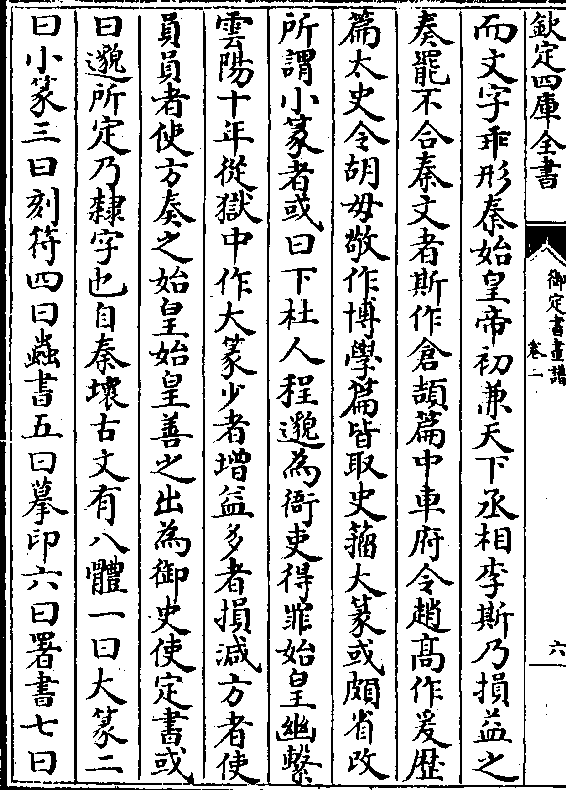 欽定四庫全書
御定書畫譜
卷二
六
而文字乖形秦始皇帝初兼天下丞相李斯乃損益之
奏罷不合秦文者斯作倉頡篇中車府令趙高作爰歴
篇太史令胡毋敬作博學篇皆取史籀大篆或頗省改
所謂小篆者或曰下杜人程邈為衙吏得罪始皇幽繫
雲陽十年從獄中作大篆少者增益多者損減方者使
員員者使方奏之始皇始皇善之出為御史使定書或
曰邈所定乃隸字也自秦壞古文有八體一曰大篆二
曰小篆三曰刻符四曰蟲書五曰摹印六曰署書七曰